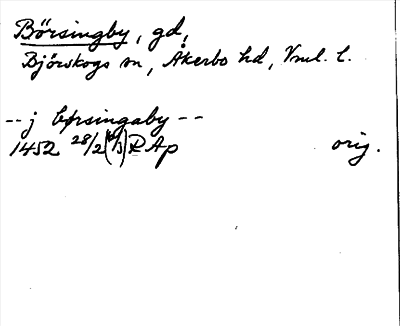 Börsingby, gd,
Björskogs sn, Åkerbo hd, Vml. l.
-- j børsingaby --
1452 28/2 RAp orig.